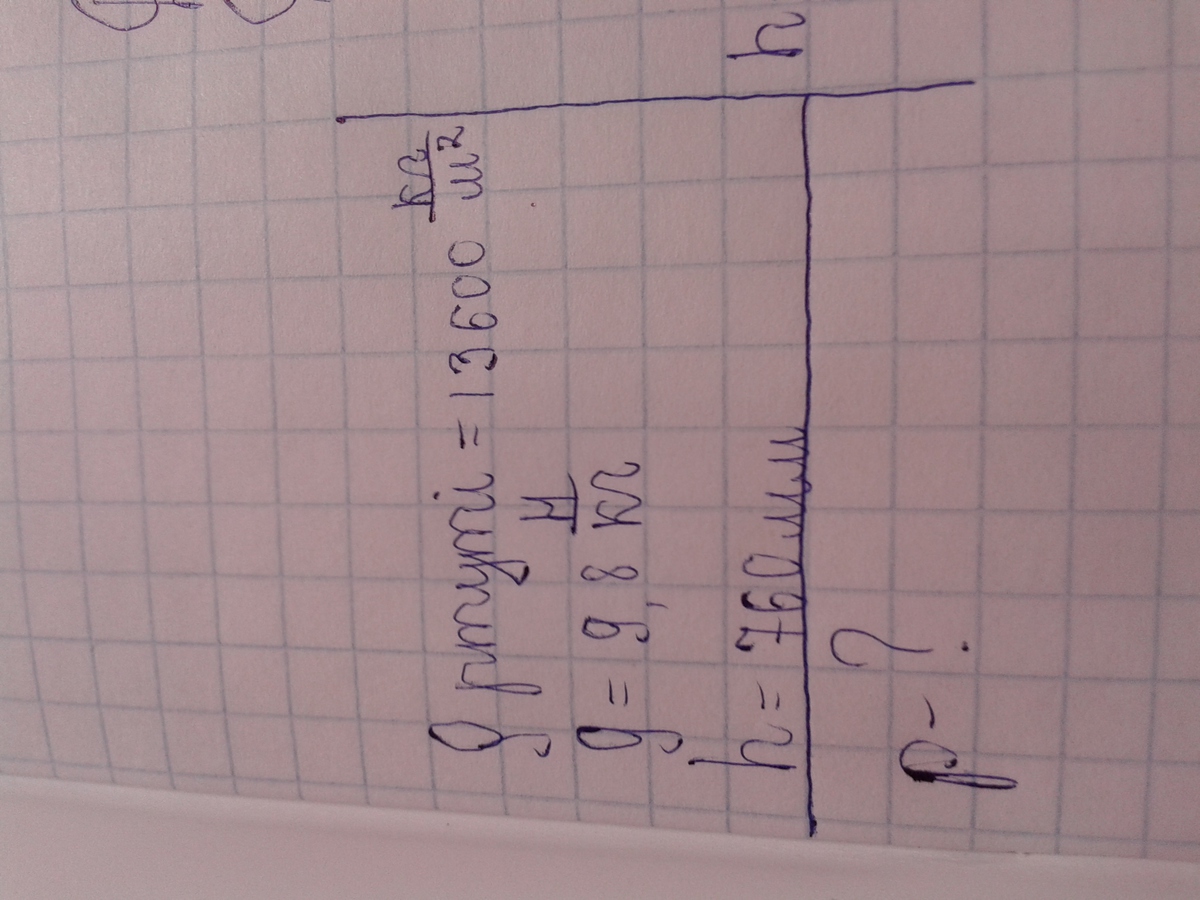 g ртуті = 13600 кг/м²
g = 9,8 Н/кг
h = 760 мм
p - ?
h